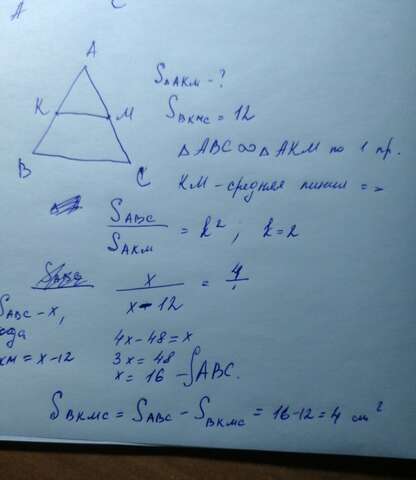 A C
A
K M
B C
S△AKM - ?
S BKMC = 12
△ABC ∞ △AKM по 1 пр.
KM - средняя линия =>
S ABC / S AKM = k² ; k = 2
x / x - 12 = 4 / 1
S ABC - x,
4x - 48 = x
KM = x - 12 3x = 48
x = 16 - S ABC.
S BKMC = S ABC - S BKMC = 16 - 12 = 4 см²